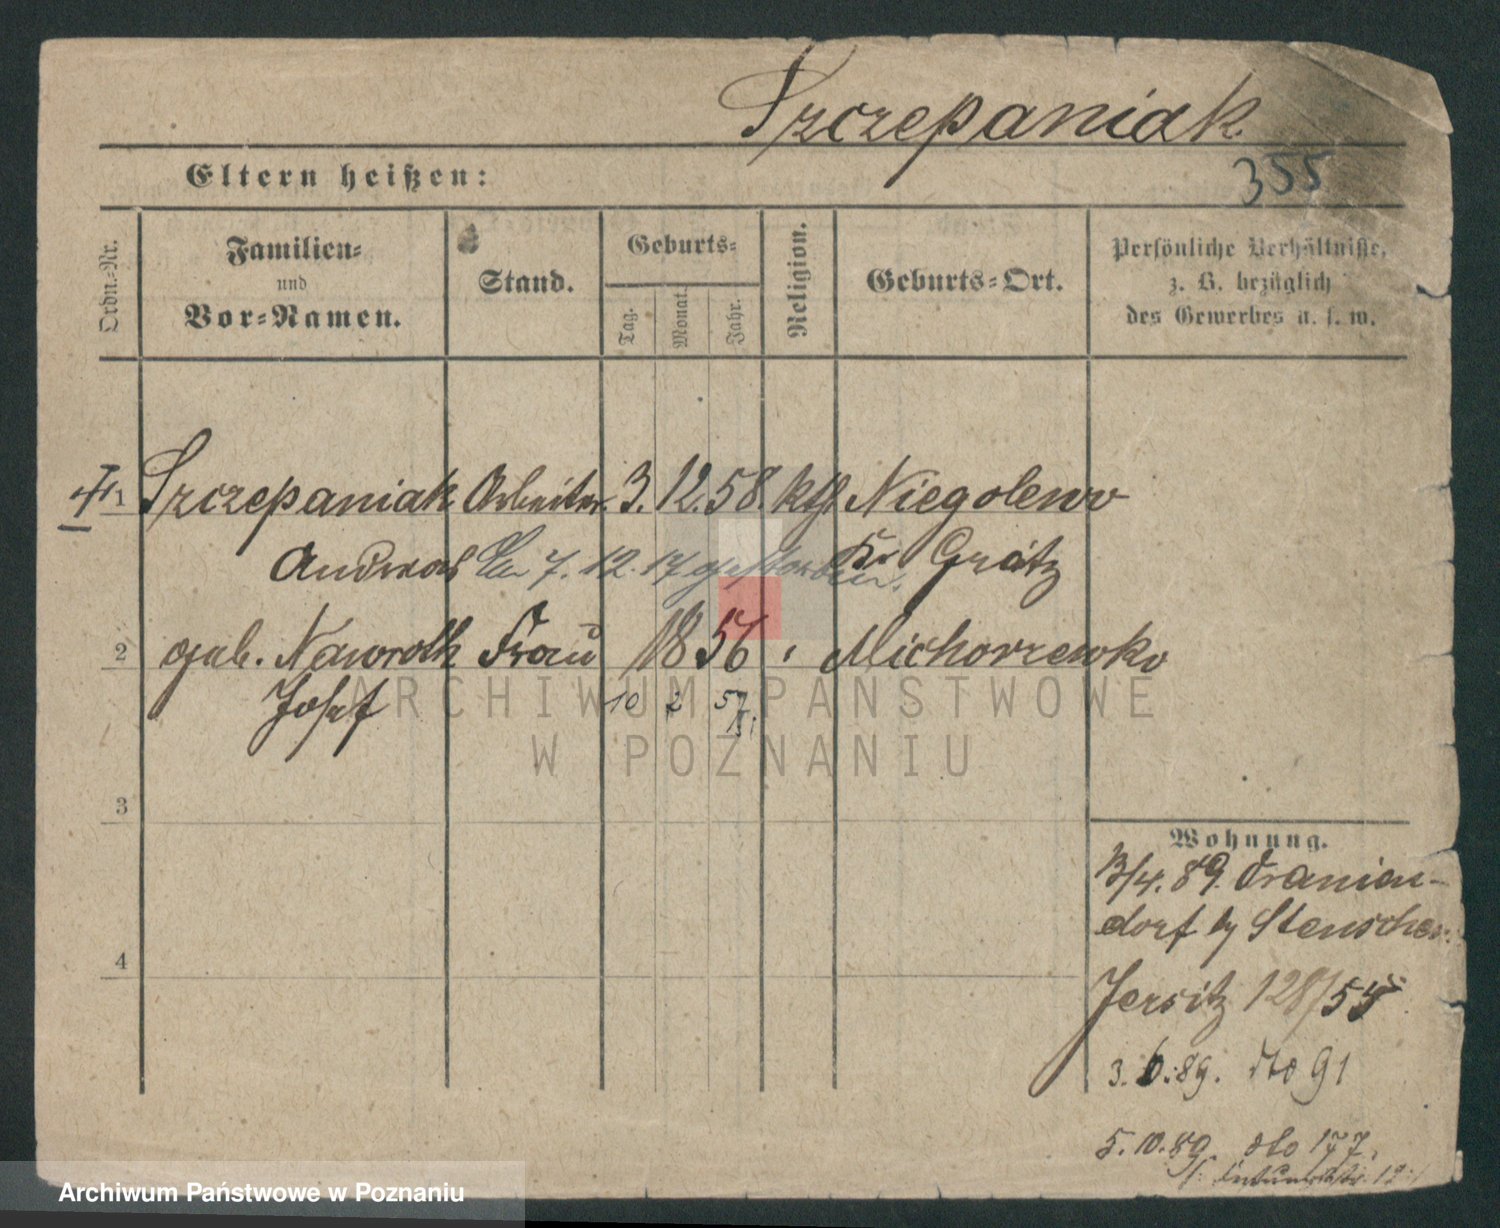 Szczepaniak
Eltern heißen:
355
Ordn.-Nr.
Familien-
und
Vor-Namen.
Stand.
Geburts-
Tag.
Monat.
Jahr.
Religion.
Geburts-Ort.
Persönliche Verhältnisse,
z. B. bezüglich
des Gewerbes u. s. w.
1 Szczepaniak Arbeiter 3. 12. 58. kth Niegolewo
Andreas Kr Grätz
am 7. 12. 17 gestorben.
2 geb. Nawroth Frau 18 56 Michorzewko
Josef 10 2 57
3
4
Wohnung.
13/4. 89. Dranien-
dorf by Stenschew
Jersitz 128/55
3. 6. 89. dto 91
5. 10. 89. dto 177.
ARCHIWUM PAŃSTWOWE
W POZNANIU
Archiwum Państwowe w Poznaniu